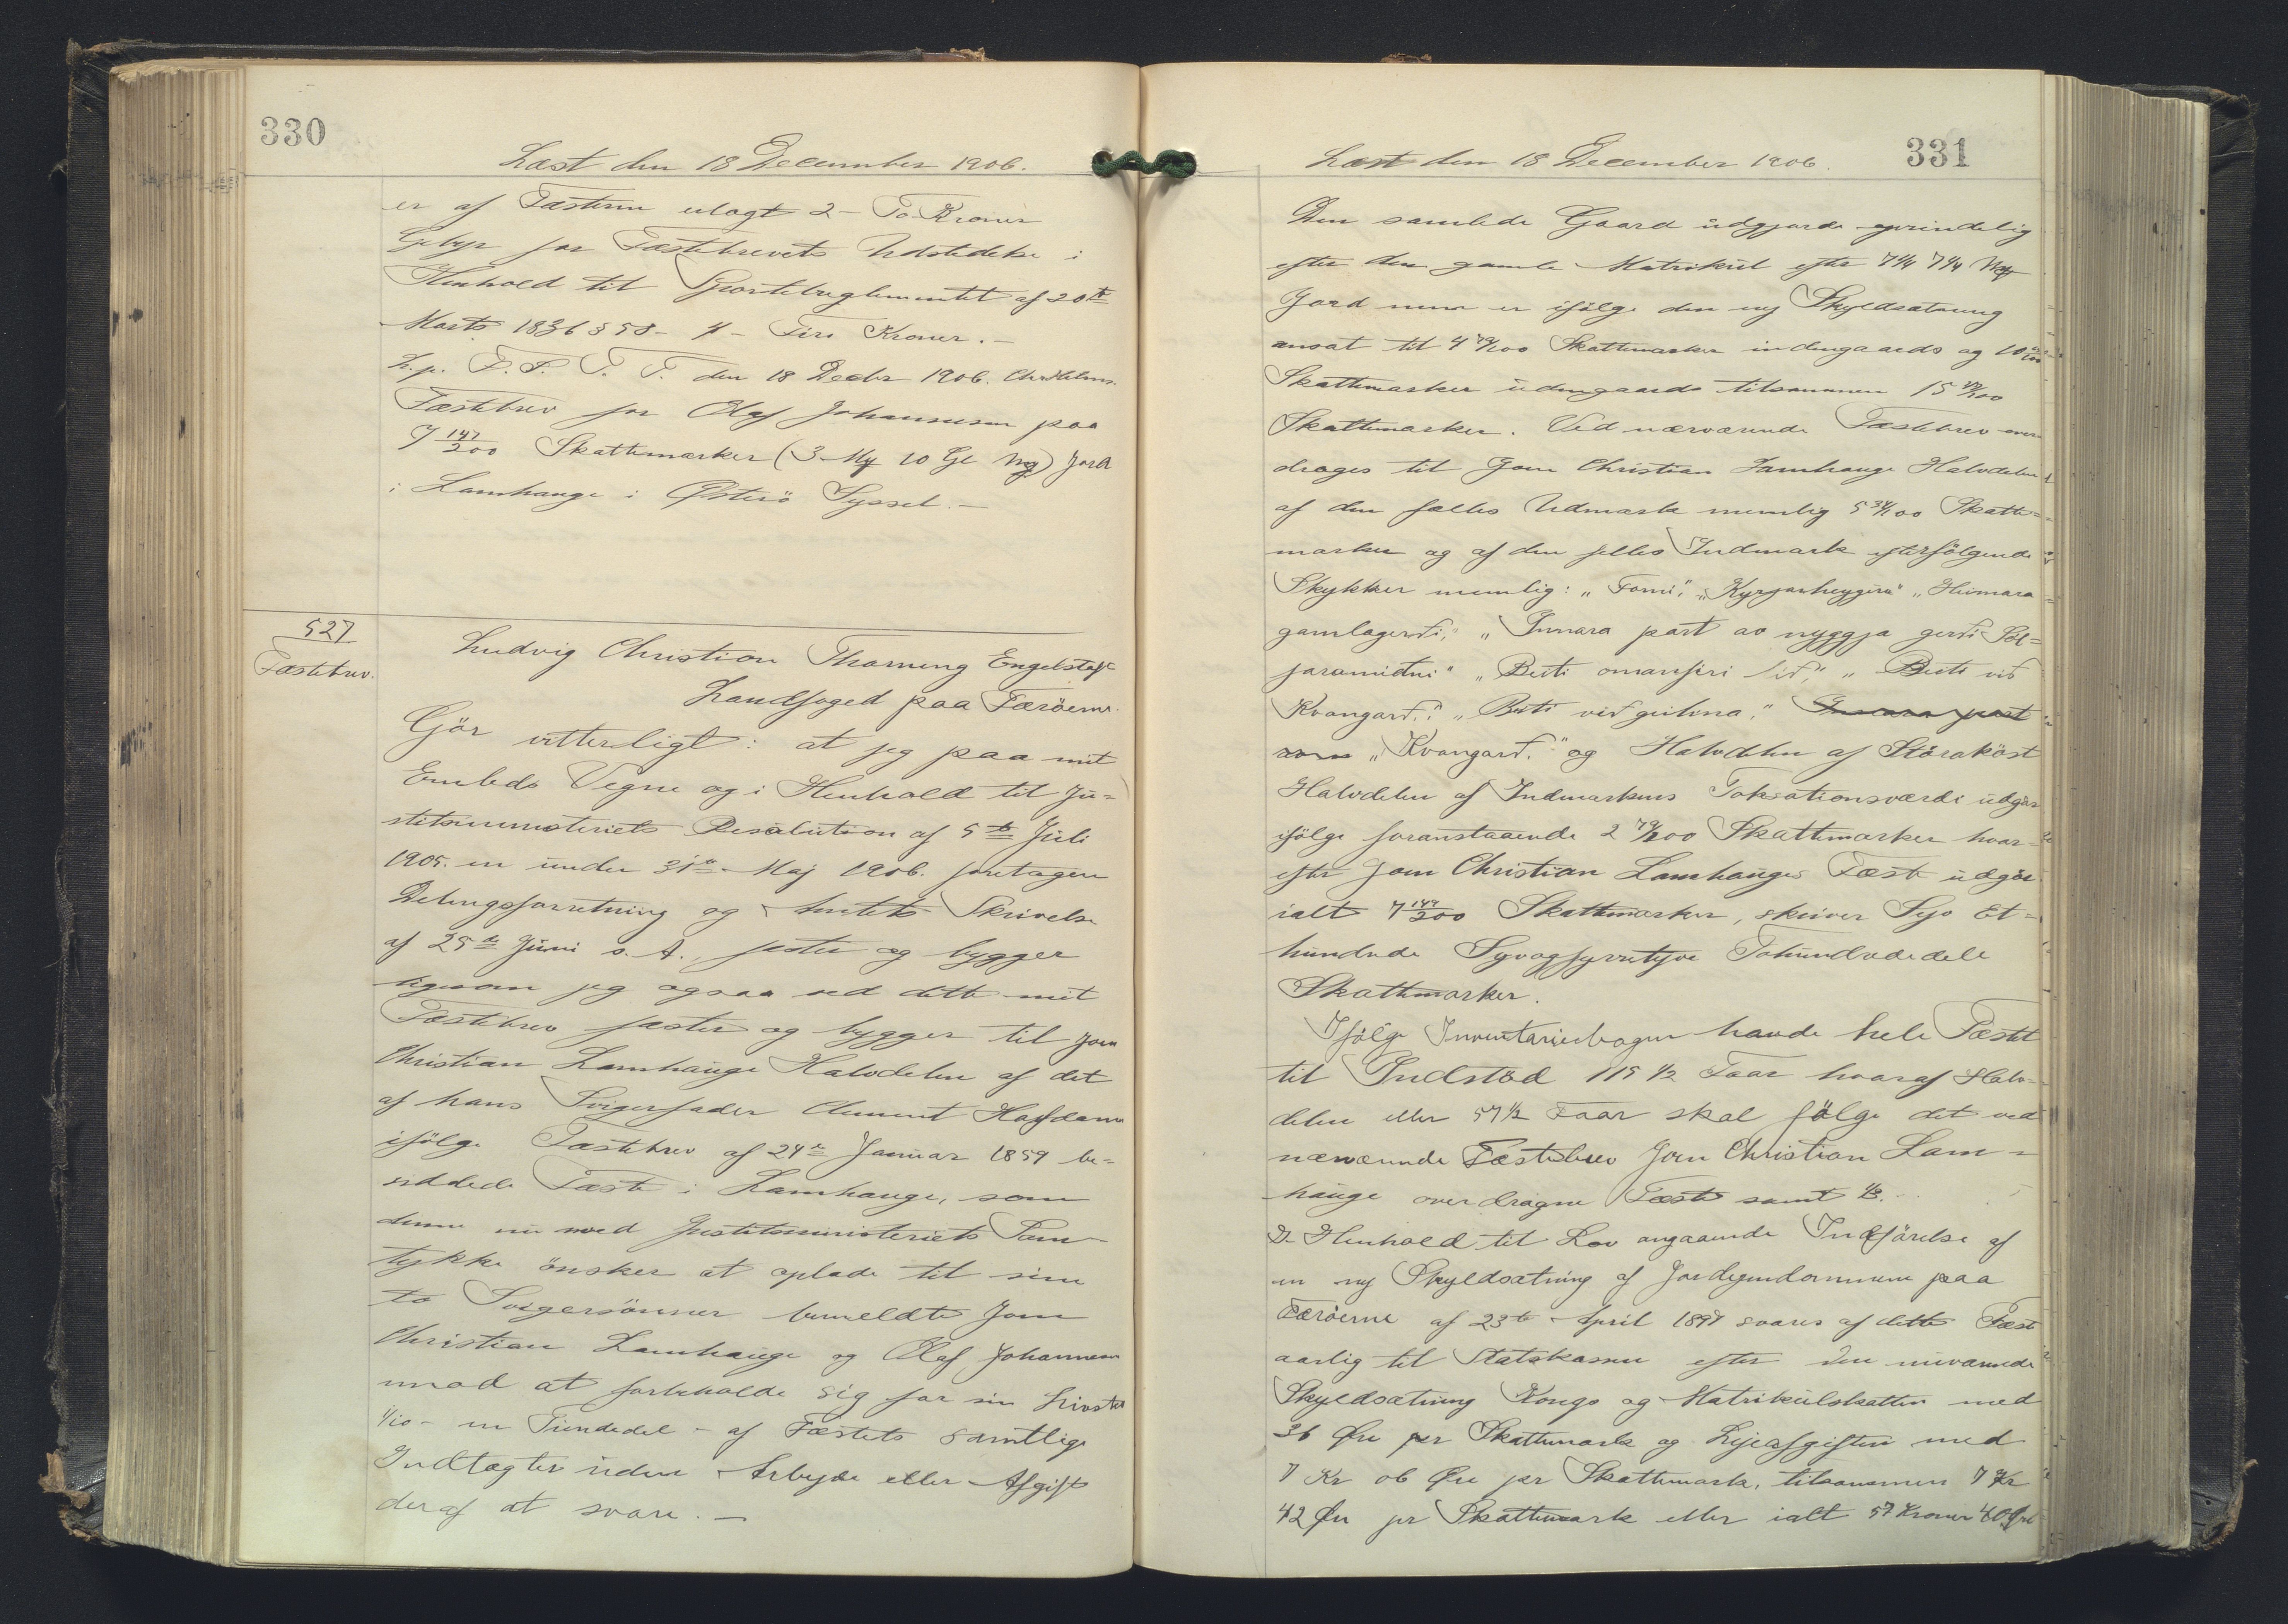 330
Læst den 18 December 1906.
er af Fæsteren erlagt 2 - To Kroner
Gebyr for Fæstebrevets Udstedelse i
Henhold til Sportelreglementet af 20de
Marts 1836 § 58 - 4 - Fire Kroner. -
F. S. T. T. den 18 Decbr 1906.
Fæstebrev for Olaf Johannesen paa
7 147/200 Skattemarker (3 Mg 10 Gl Mg) Jord
i Lamhauge i Østerö Syssel. -
527
Fæstebrev.
Ludvig Christian Thorning Engelstoft
Landfoged paa Færöerne.
Gör vitterligt: at jeg paa mit
Embeds Vegne og i Henhold til Ju=
stitsministeriets Resolution af 5te Juli
1905. en under 31te Maj 1906. foretagen
Delingsforretning og Amtets Skrivelse
af 25de Juni s. A., fæster og bygger
ligesom jeg ogsaa ved dette mit
Fæstebrev fæster og bygger til Joen
Christian Lamhauge Halvdelen af det
af hans Svigerfader Clement Hafdann
ifölge Fæstebrev af 24de Januar 1859 be=
siddede Fæste i Lamhauge, som
denne nu med Justitsministeriets Sam=
tykke önsker at oplade til sine
to Svigersönner bemeldte Joen
Christian Lamhauge og Olaf Johannesen
mod at forbeholde sig for sin Livstid
1/10 - en Tiendedel - af Fæstets samtlige
Indtægter uden Arbejde eller Afgift
deraf at svare. -
331
Læst den 18 December 1906.
Den samlede Gaard udgjorde oprindelig
efter den gamle Matrikul efter 7 1/4 7 1/4 Mg
Jord men er ifölge den ny Skyldsætning
ansat til 4 79/100 Skattemarker indengaards og 10
Skattemarker udengaards tilsammen 15 47/100
Skattemarker. Ved nærværende Fæstebrev over
drages til Joen Christian Lamhauge Halvdelen
af den fælles Udmark nemlig 5 34/100 Skatte=
marker og af den fælles Indmark efterfölgende
Stykker nemlig: „Fomi", „Kyrjarheygeru" „Heimara
gamlagerði," „Innara part av nyggja gerði Söl=
jaramidni" „Beiti omanfiri lið," „Beiti við
Kvangarð." „Beiti við gulina," Innara part
som „Kvangarð." og Halvdelen af Störaköst
Halvdelen af Indmarkens Taksationsværdi udgör
ifölge foranstaaende 2 79/200 Skattemarker hvor=
efter Joen Christian Lamhauges Fæste udgör
ialt 7 147/200 Skattemarker, skriver Syv Et=
hundrede Syvogfyrretyve Tohundrededele
Skattemarker.
Ifölge Inventariebogen havde hele Fæstet
til Indstöd 115 1/2 Faar hvoraf Halv=
delen eller 57 1/2 Faar skal fölge det ved
nærværende Fæstebrev Joen Christian Lam=
hauge overdragne Fæste samt 1/3.
I Henhold til Lov angaaende Indförelse af
en ny Skyldsætning af Jordejendommene paa
Færöerne af 23de April 1897 svares af dette Fæste
aarlig til Statskassen efter den nuværende
Skyldsætning Konge og Matrikulskatten med
36 Öre per Skattemark og Lejeafgiften med
7 Kr 06 Öre per Skattemark, tilsammen 7 Kr
42 Öre pr Skattemark eller ialt 57 Kroner 40 Öre